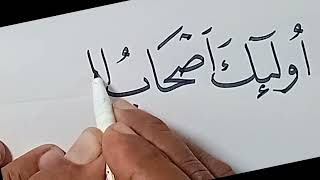 أُولَئِكَ أَصْحَابُ ال